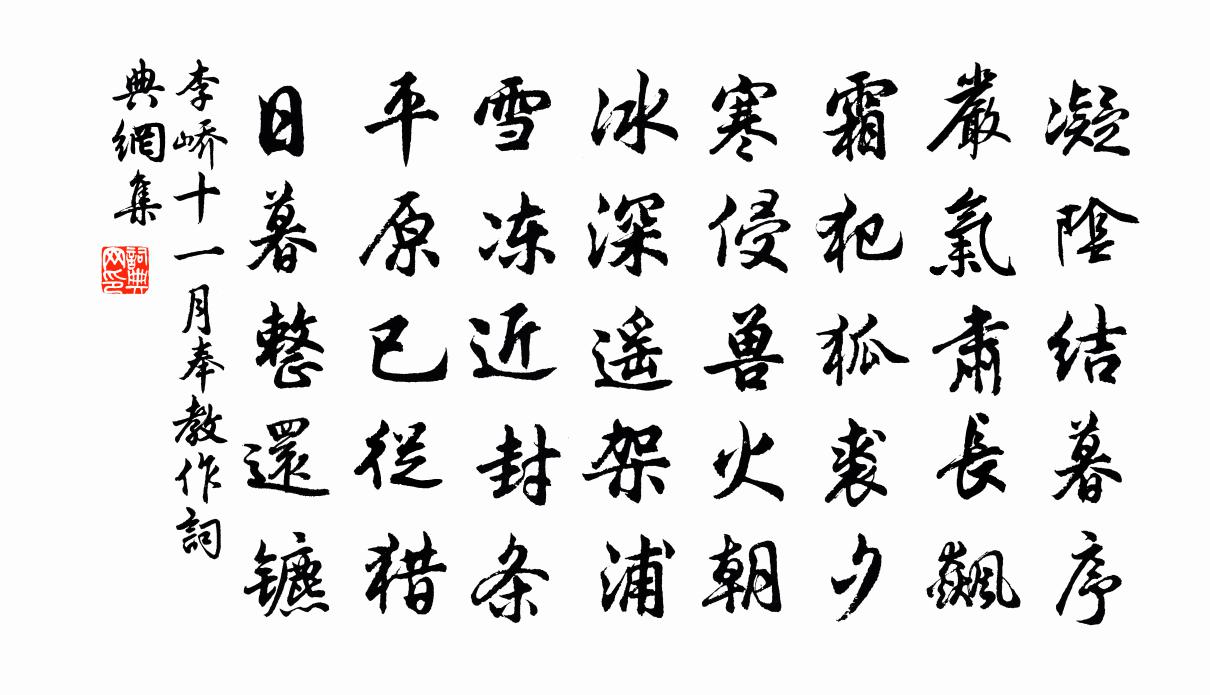 凝陰结暮序
嚴氣肅長飙
霜犯狐裘夕
寒侵兽火朝
冰深遥架浦
雪冻近封条
平原已從猎
日暮整還镳
李峤十一月奉教作詞
典網集
詞典
网印